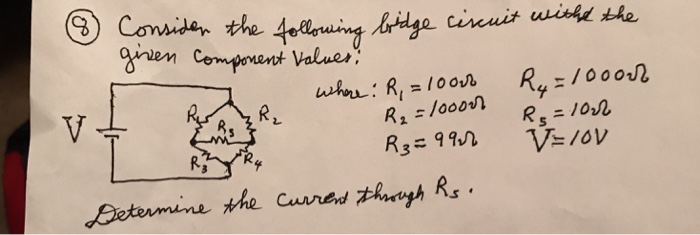 ⑧ Consider the following bridge circuit withe the
given Component Values:
where: R₁ = 100Ω R₄ = 1000Ω
R₂ = 1000Ω R₅ = 10Ω
R₃ = 99Ω V = 10V
V R₁ R₅ R₂
R₃ R₄
Determine the Current through R₅.